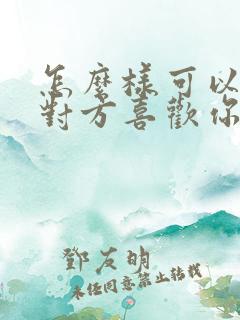 怎麼樣可以
對方喜歡你
鄧友明
未任同意禁止转载